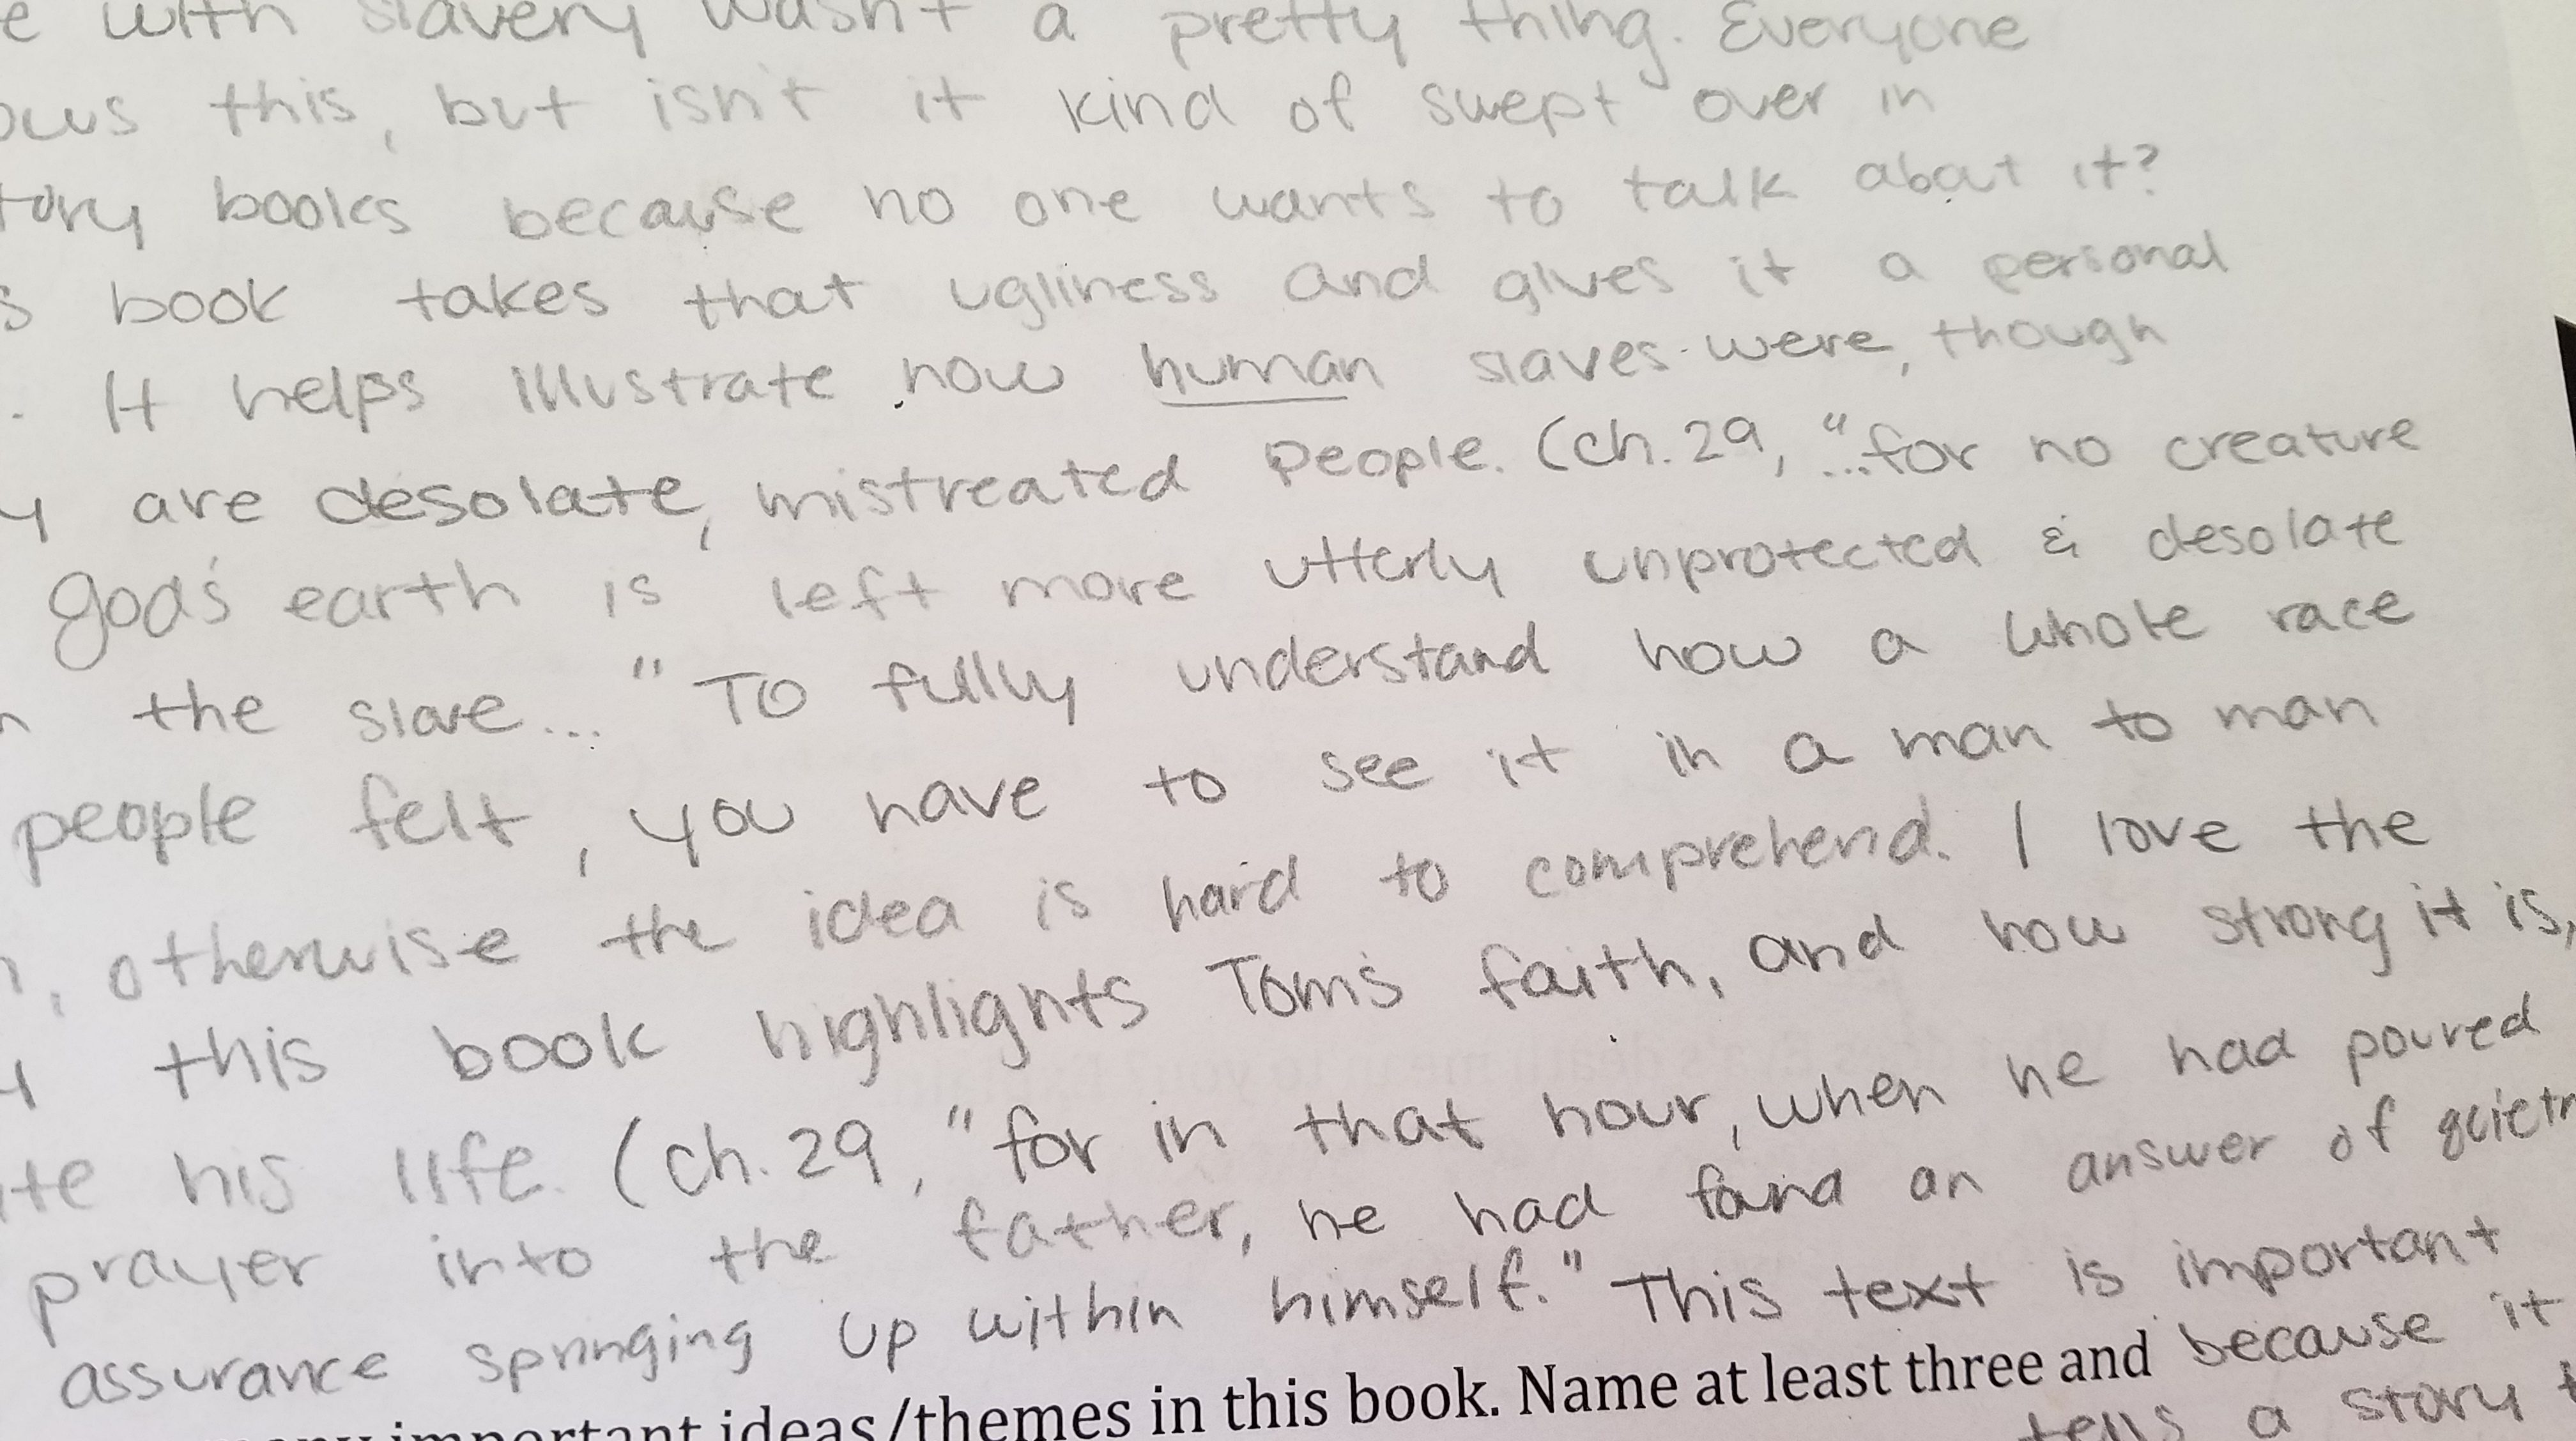 e with slavery wasn't a pretty thing. Everyone
ows this, but isn't it kind of swept over in
tory books because no one wants to talk about it?
s book takes that ugliness and gives it a personal
. It helps illustrate how human slaves were, though
y are desolate, mistreated people. (ch. 29, "...for no creature
god's earth is left more utterly unprotected & desolate
n the slave... " To fully understand how a whole race
people felt, you have to see it in a man to man
n, otherwise the idea is hard to comprehend. I love the
y this book highlights Tom's faith, and how strong it is,
ite his life. (ch. 29, "for in that hour, when he had poured
prayer into the father, he had found an answer of quietn
assurance springing up within himself." This text is important
because it
tells a story t
important ideas/themes in this book. Name at least three and